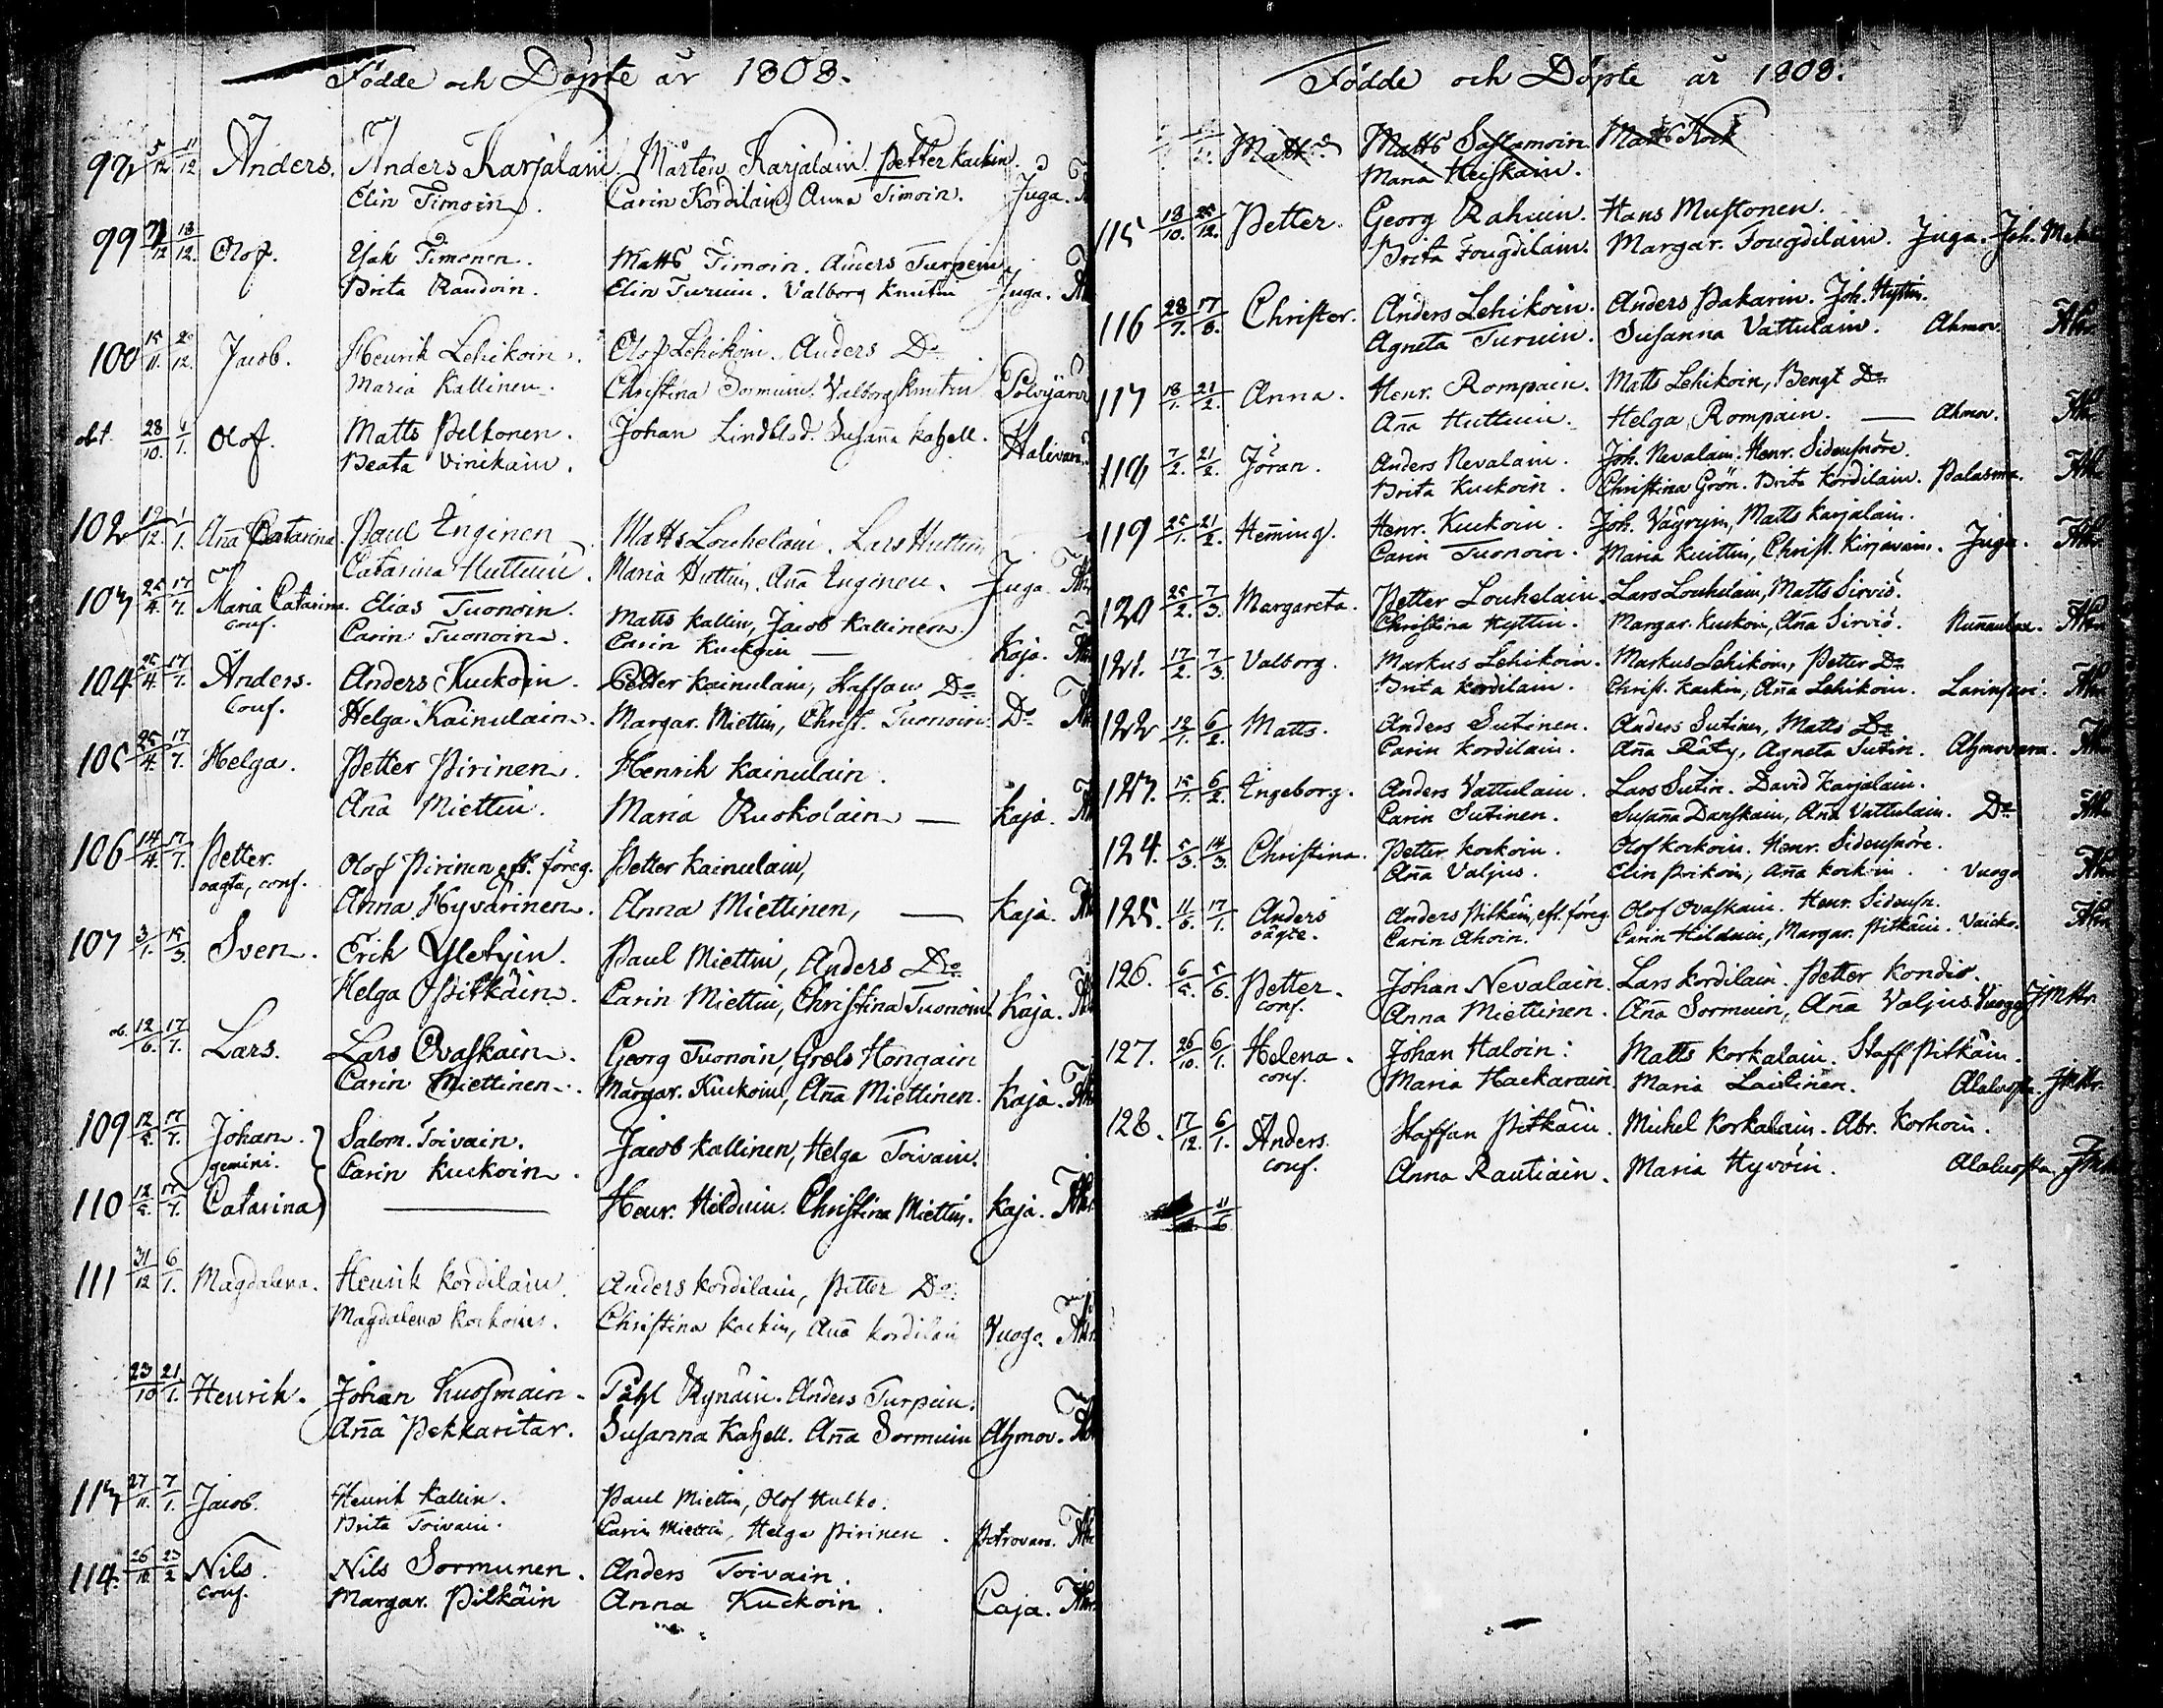 Födde och Döpte år 1808.
98 5/12 11/12 Anders. Anders Karjalain. Mårten Karjalain. Petter Kackin.
Elin Timoin. Carin Kordilain, Anna Timoin. Juga.
99 7/12 18/12 Olof. Isak Timonen. Matts Timoin. Anders Turpein
Brita Raudoin. Elin Turuin. Valborg Knutin Juga.
100 15/11. 20/12. Jacob. Henrik Lehikoin. Olof Lehikoin. Anders Do
Maria Kallinen. Christina Sormuin. Valborg Knutin Polvijärvi
ob.t. 28/10. 1/1. Olof. Matts Pelkonen. Johan Lindblad. Susaña Kahell.
Beata Vinikain. Halivara.
102 12/12. 1/1. Aña Catarina. Paul Inginen Matts Louhelain. Lars Huttuin
Catarina Huttuin. Maria Huttuin. Aña Inginen. Juga.
103 25/4. 17/7. Maria Catarina. Elias Tuonoin. Matts Kallin, Jacob Kallinen.
conf. Carin Tuonoin. Carin Kuckoin — Kaja.
104 25/4. 17/7. Anders. Anders Kuckoin. Petter Kainulain, Staffan Do
Conf. Helga Kainulain. Margar. Miettin, Christ. Tuonoin. Do
105 25/4. 17/7. Helga. Petter Pirinen. Henrik Kainulain.
Aña Miettin. Maria Ruokolain — Kaja.
106 14/4. 17/7. Petter. Olof Pirinen eft. föreg. Petter Kainulain,
oägta, conf. Anna Hyvärinen. Anna Miettinen, — Kaja.
107 3/1. 15/3. Sven. Erik Yletyin. Paul Miettin, Anders Do
Helga Pitkäin. Carin Miettin, Christina Tuonoin. Kaja.
ob. 12/6. 17/7. Lars. Lars Ovaskain. Georg Tuonoin, Grels Hongain
Carin Miettinen. Margar. Kuckoin, Aña Miettinen. Kaja.
109 12/5. 17/7. Johan. Salom. Toivain. Jacob Kallinen, Helga Toivain.
gemini. Carin Kuckoin.
110 12/5. 17/7. Catarina — Henr. Hilduin. Christina Miettin. Kaja.
111 31/12 6/1. Magdalena. Henrik Kordilain. Anders Kordilain, Petter Do
Magdalena Korhoin. Christina Kackin, Aña Kordilain Vuogo.
23/10 21/1. Henrik. Johan Kuosmain. Påhl Rynäin. Anders Turpein.
Aña Pekkaritar. Susanna Kahell. Aña Sormuin Ahmov.
113 27/11. 7/1. Jacob. Henrik Kallin. Paul Miettin, Olof Hulko.
Brita Toivain. Carin Miettin, Helga Pirinen. Petrovara.
114. 26/10. 23/2 Nils. Nils Sormunen. Anders Toivain.
conf. Margar. Pitkäin Anna Kuckoin. Caja.
Födde och Döpte år 1808.
Matts Matts Saslamoin. Matts Kock
Maria Heiskain.
115 18/10. 25/12. Petter. Georg Rahuin. Hans Mustonen.
Brita Fougdilain. Margar. Fougdilain. Juga. Joh.
116 28/7. 17/8. Christer. Anders Lehikoin. Anders Pakarin. Joh. Hyttin.
Agneta Turuin. Susanna Vattulain. Ahmov.
117 18/1. 21/2. Anna. Henr. Rompain. Matts Lehikoin, Bengt Do
Aña Huttuin. Helga Rompain. — Ahmov.
118 7/2. 21/2. Jöran. Anders Nevalain. Joh. Nevalain. Henr. Sidensnöre.
Brita Kuckoin. Christina Grön. Brita Kordilain. Palasma.
119 25/1. 21/2. Hem̃ing. Henr. Kuckoin. Joh. Väyryin, Matts Karjalain.
Carin Tuonoin. Maria Knittin, Christ. Kirjavain. Juga.
120 25/2. 7/3. Margareta. Petter Louhelain. Lars Louhelain, Matts Sirviö.
Christina Hyttin. Margar. Kuckoin, Aña Sirviö.
121. 17/2. 7/3. Valborg. Markus Lehikoin. Markus Lehikoin, Petter Do
Brita Kordilain. Christ. Kackin, Aña Lehikoin. Larinsari.
122 12/1. 6/2. Matts. Anders Sutinen. Anders Sutinen, Matts Do
Carin Kordilain. Aña Räty, Agneta Sutin. Ahmovara.
123. 15/1. 6/2. Ingeborg. Anders Vattulain. Lars Sutin. David Karjalain.
Carin Sutinen. Susaña Danskain, Aña Vattulain. Do
124. 5/3. 14/3. Christina. Petter Kockoin. Olof Kockoin. Henr. Sidensnöre.
Aña Valjus. Elin Prikoin, Aña Kockoin. Vuogo
125. 11/6. 17/7. Anders Anders Pitkäin, eft. föreg. Olof Ovaskain. Henr. Sidensn.
oägte. Carin Ahoin. Carin Hilduin, Margar. Pitkäin. Vaicko.
126. 6/5. 5/6. Petter. Johan Nevalain. Lars Kordilain. Petter Kondio.
conf. Anna Miettinen. Aña Sormuin, Aña Valjus. Vuogo
127. 26/10. 6/1. Helena. Johan Haloin. Matts Korkalain. Staff. Pitkäin.
conf. Maria Hackarain. Maria Laitinen. Alaluosta.
128. 17/12. 6/1. Anders. Staffan Pitkäin. Michel Korkalain. Abr. Korhoin.
conf. Anna Rautiain. Maria Hyvöin. Alaluosta.
11/6